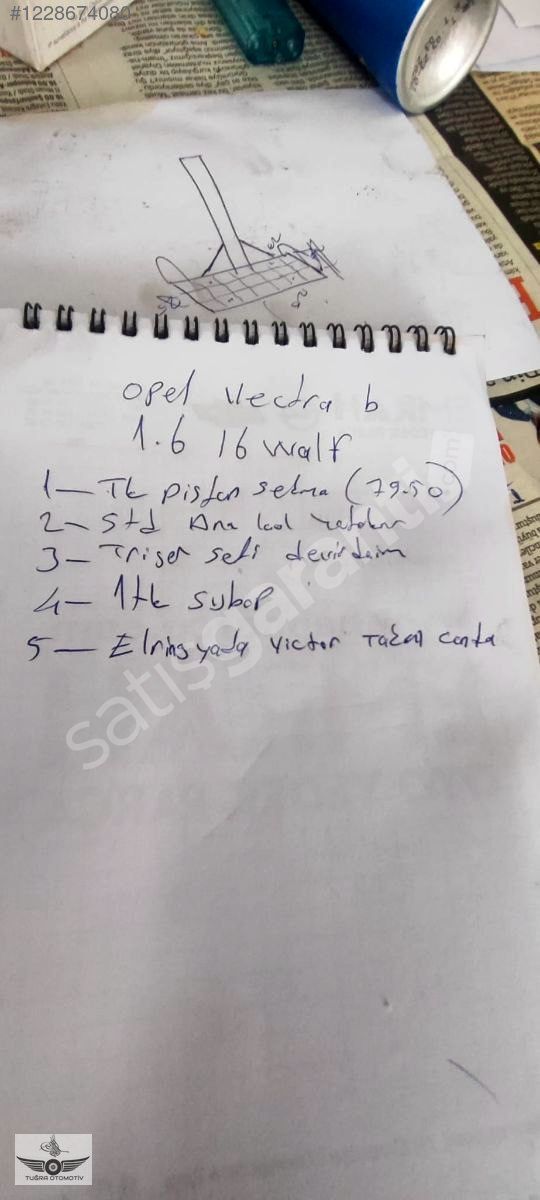 #1228674080
opel Vectra b
1.6 16 walf
1 — Tk piston sekma (79.50)
2 — Std Ana kol yatakları
3 — Triger seti devirdaim
4 — 1 tk subap
5 — Elring yada Victor Takım conta
satışgaranti.com
TUĞRA OTOMOTİV